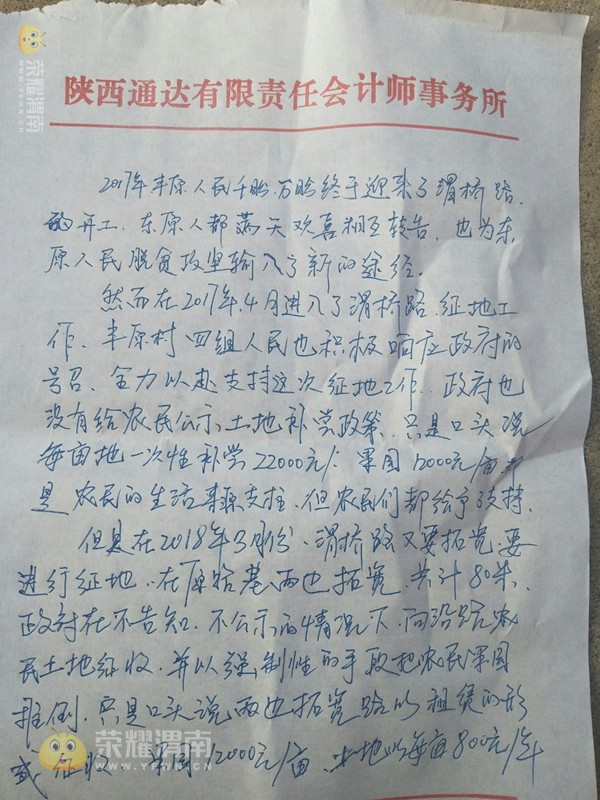 荣耀渭南
陕西通达有限责任会计师事务所
2017年丰原人民千盼万盼终于迎来了渭桥路
的开工.东原人都满天欢喜相互转告.也为东
原人民脱贫攻坚输入了新的途经.
然而在2017年.4月进入了渭桥路.征地工
作.丰原村四组人民也积极响应政府的
号召.全力以赴支持这次征地工作.政府也
没有给农民公示土地补尝政策.只是口头说
每亩地一次性补尝22000元/.果园12000元/亩
是农民的生活来源支柱.但农民们都给予支持.
但是在2018年3月份.渭桥路又要拓宽.要
进行征地.在原路基两边拓宽.共计80米.
政府在不告知.不公示的情况下.向沿路农
民土地征收.并以强制性的手段把农民果园
推倒.只是口头说两边拓宽路以租赁的形
式征收.果园12000元/亩.土地以每亩800元/年
荣耀渭南